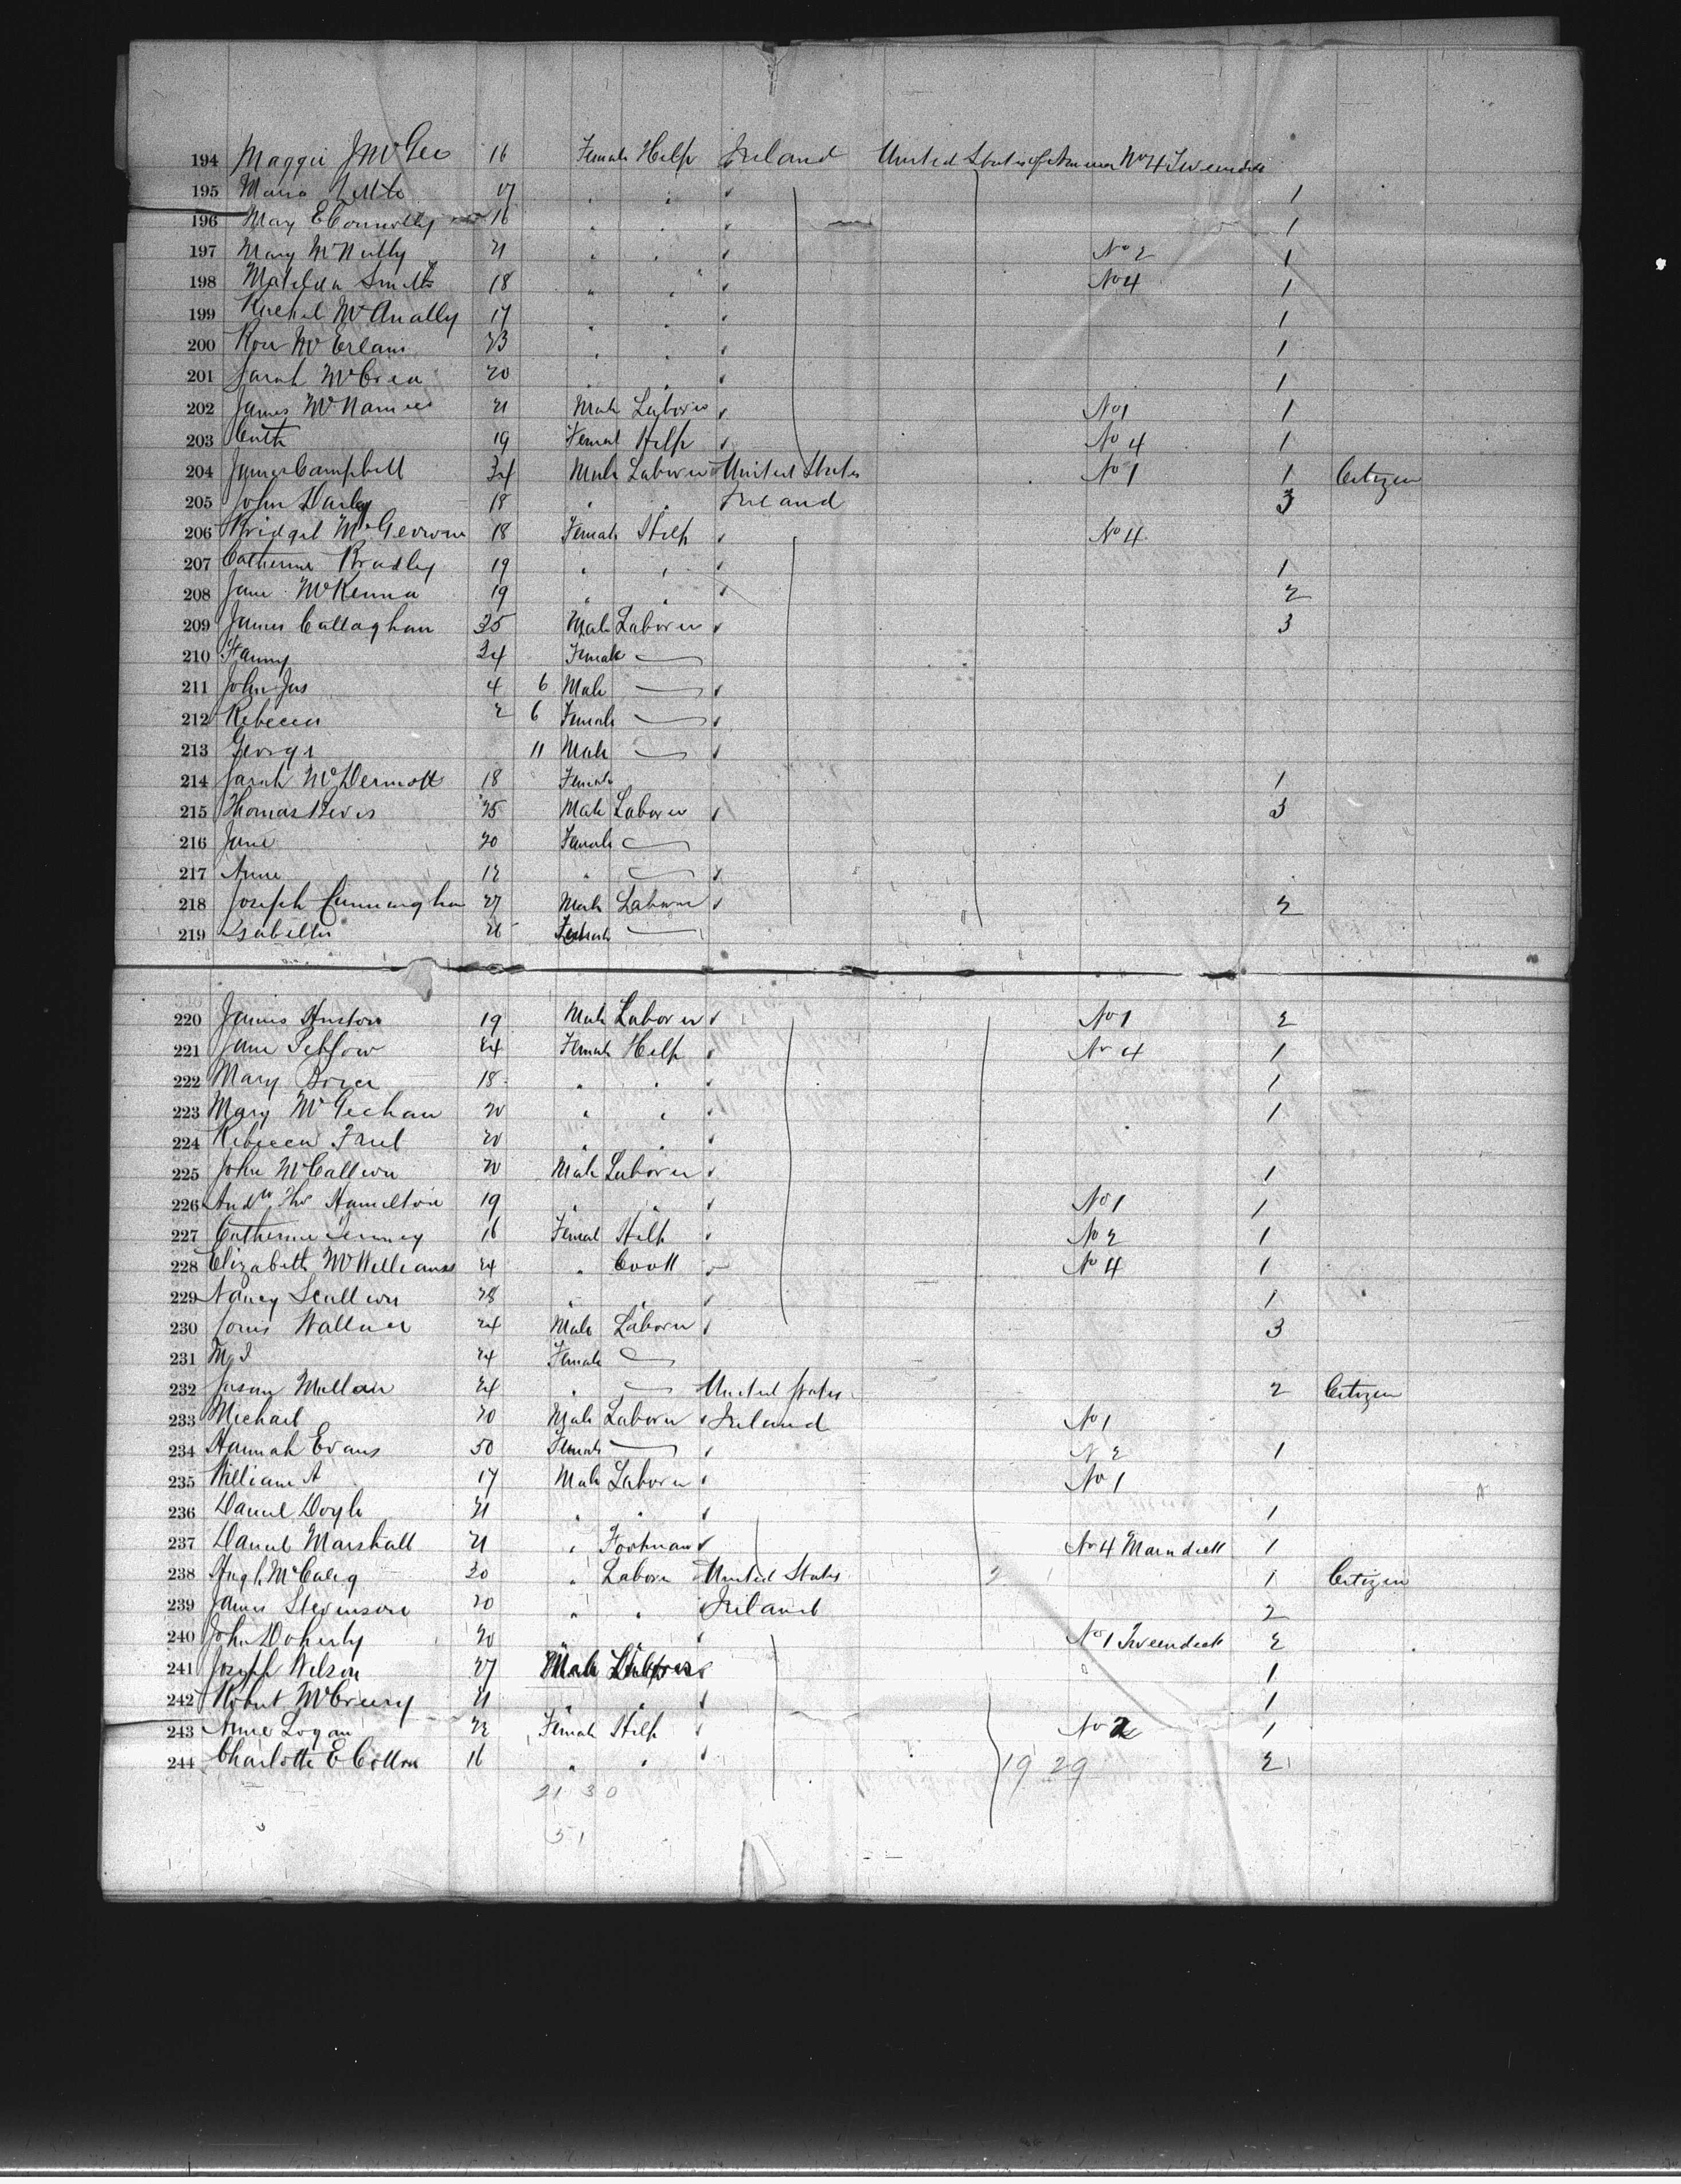 194 Maggie J McGee 16 Female Help Ireland United States of America No 4 Tweendeck
195 Maria 17 " " " 1
196 Mary E Connolly 16 " " " 1
197 Mary McNulty 21 " " " No 2 1
198 Matilda Smith 18 " " " No 4 1
199 Rachel McAnally 17 " " " 1
200 Rose McErlain 23 " " " 1
201 Sarah McCrea 20 " " " 1
202 James McNamee 21 Male Laborer " No 1 1
203 19 Femal Help " No 4 1
204 James Campbell 34 Male Laborer United States No 1 1 Citizen
205 John 18 " " Ireland 3
206 Bridget 18 Female Help " No 4
207 Catherine Bradley 19 " " " 1
208 Jane McKenna 19 " " " 2
209 James Callaghan 35 Male Laborer " 3
210 Fanny 34 Female
211 John Jas 4 6 Male "
212 Rebecca 2 6 Female "
213 George 11 Male "
214 Sarah McDermott 18 Female 1
215 Thomas 25 Male Laborer " 3
216 Jane 20 Female
217 Anne 12 " "
218 Joseph Cunningham 27 Male Laborer " 2
219 Isabella 26 Female
220 James Huston 19 Male Laborer " No 1 2
221 Jane 24 Female Help " No 4 1
222 Mary 18 " " " 1
223 Mary McGechan 20 " " " 1
224 Rebecca 20 " " "
225 John McCallion 20 Male Laborer " 1
226 Andw Thos Hamilton 19 " " " No 1 1
227 Catherine 16 Femal Help " No 2 1
228 Elizabeth McWilliams 24 " Cook " No 4 1
229 Nancy Scullion 28 " " " 1
230 Wallace 24 Male Laborer " 3
231 24 Female
232 24 " United States 2 Citizen
233 Michael 20 Male Laborer " Ireland No 1
234 Hannah Evans 50 Female " No 2 1
235 William A 17 Male Laborer " No 1
236 Daniel Doyle 21 " " " 1
237 Daniel Marshall 21 " Footman " No 4 Maindeck 1
238 Hugh 30 " Laborer United States 1 Citizen
239 James Stevenson 20 " " Ireland 2
240 John Doherty 20 " " " No 1 Tweendeck 2
241 Joseph Wilson 27 Male Laborer " 1
242 Robert McCreery 21 " " " 1
243 Anne Logan 22 Female Help " No 2 1
244 Charlotte E Cotton 16 " " " 19 29 2
21 30
51